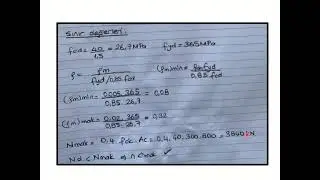 Sınır değerleri:
fcd = 40/1.5 = 26,7 MPa    fyd = 365 MPa
ρ = ρm / fyd/0,85 fcd    (ρm)min = ρm fyd / 0,85 fcd
(ρm)min = 0,005. 365 / 0,85. 26,7 = 0,08
(ρm)mak = 0,02. 365 / 0,85. 26,7 = 0,32
Nmak = 0,4. fck. Ac = 0,4. 40. 300. 800 = 3840 kN
Nd < Nmak